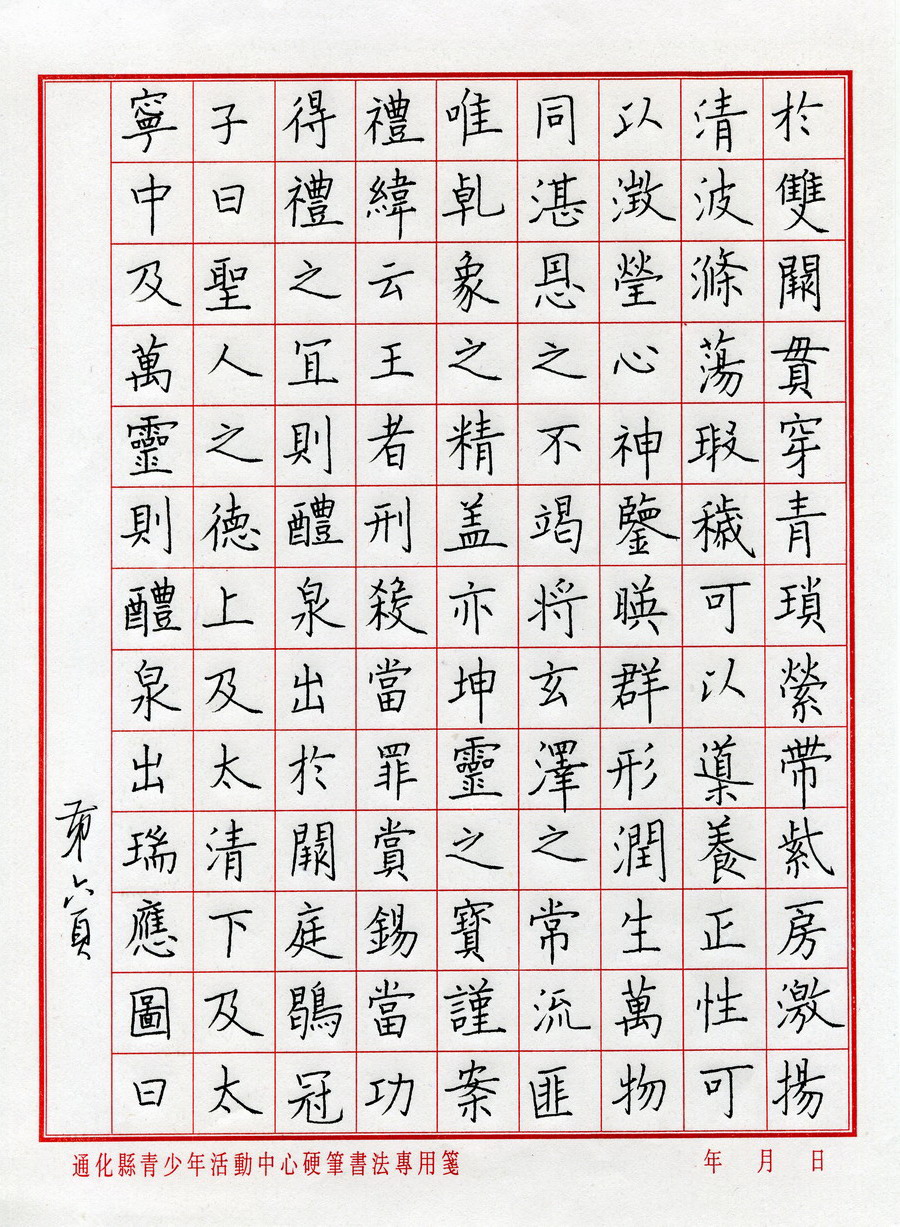 於雙闕貫穿青瑣縈帶紫房激揚
清波滌蕩瑕穢可以導養正性可
以澂瑩心神鑒暎群形潤生萬物
同湛恩之不竭將玄澤之常流匪
唯乹象之精盖亦坤靈之寶謹案
禮緯云王者刑殺當罪賞錫當功
得禮之宜則醴泉出於闕庭鶡冠
子曰聖人之德上及太清下及太
寧中及萬靈則醴泉出瑞應圖曰
第六頁
通化縣青少年活動中心硬筆書法專用箋
年 月 日